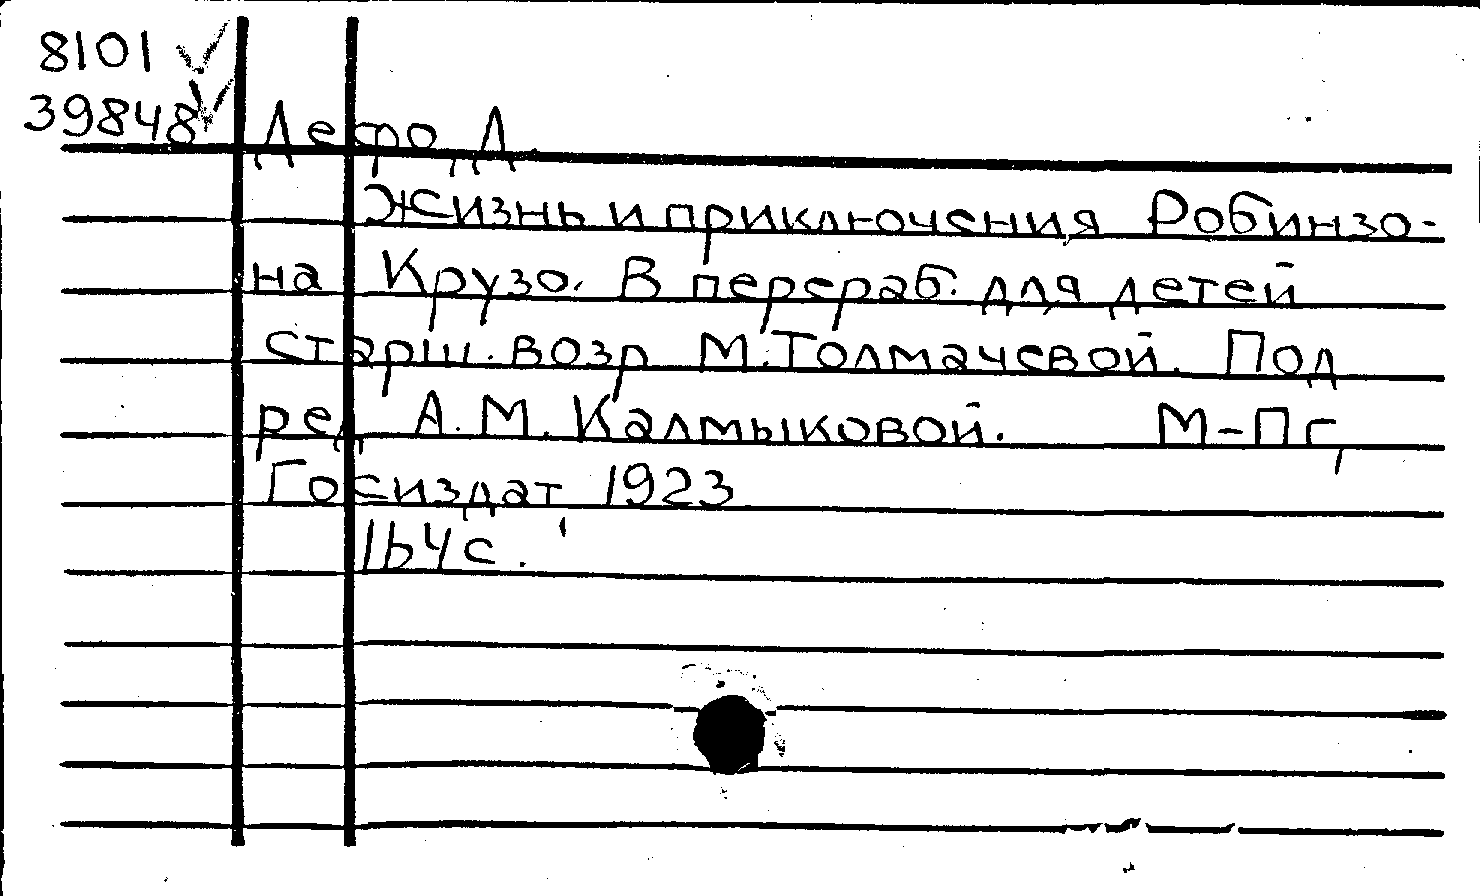 8101
39848
Дефо, Д.
Жизнь и приключения Робинзо-
на Крузо. В перераб. для детей
старш. возр М. Толмачевой. Под
ред А. М. Калмыковой. М-Пг,
Госиздат, 1923
164с.